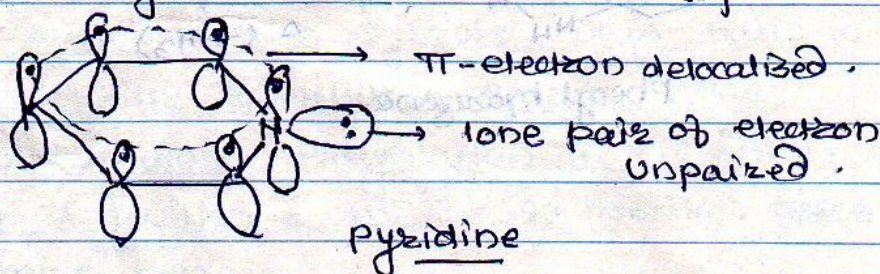 π-electron delocalized.
N
lone pair of electron
unpaired.
pyridine